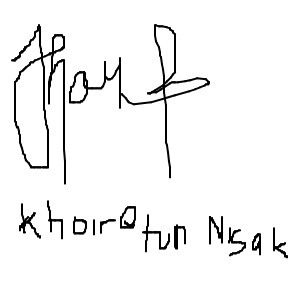 Khoiratun Nisak